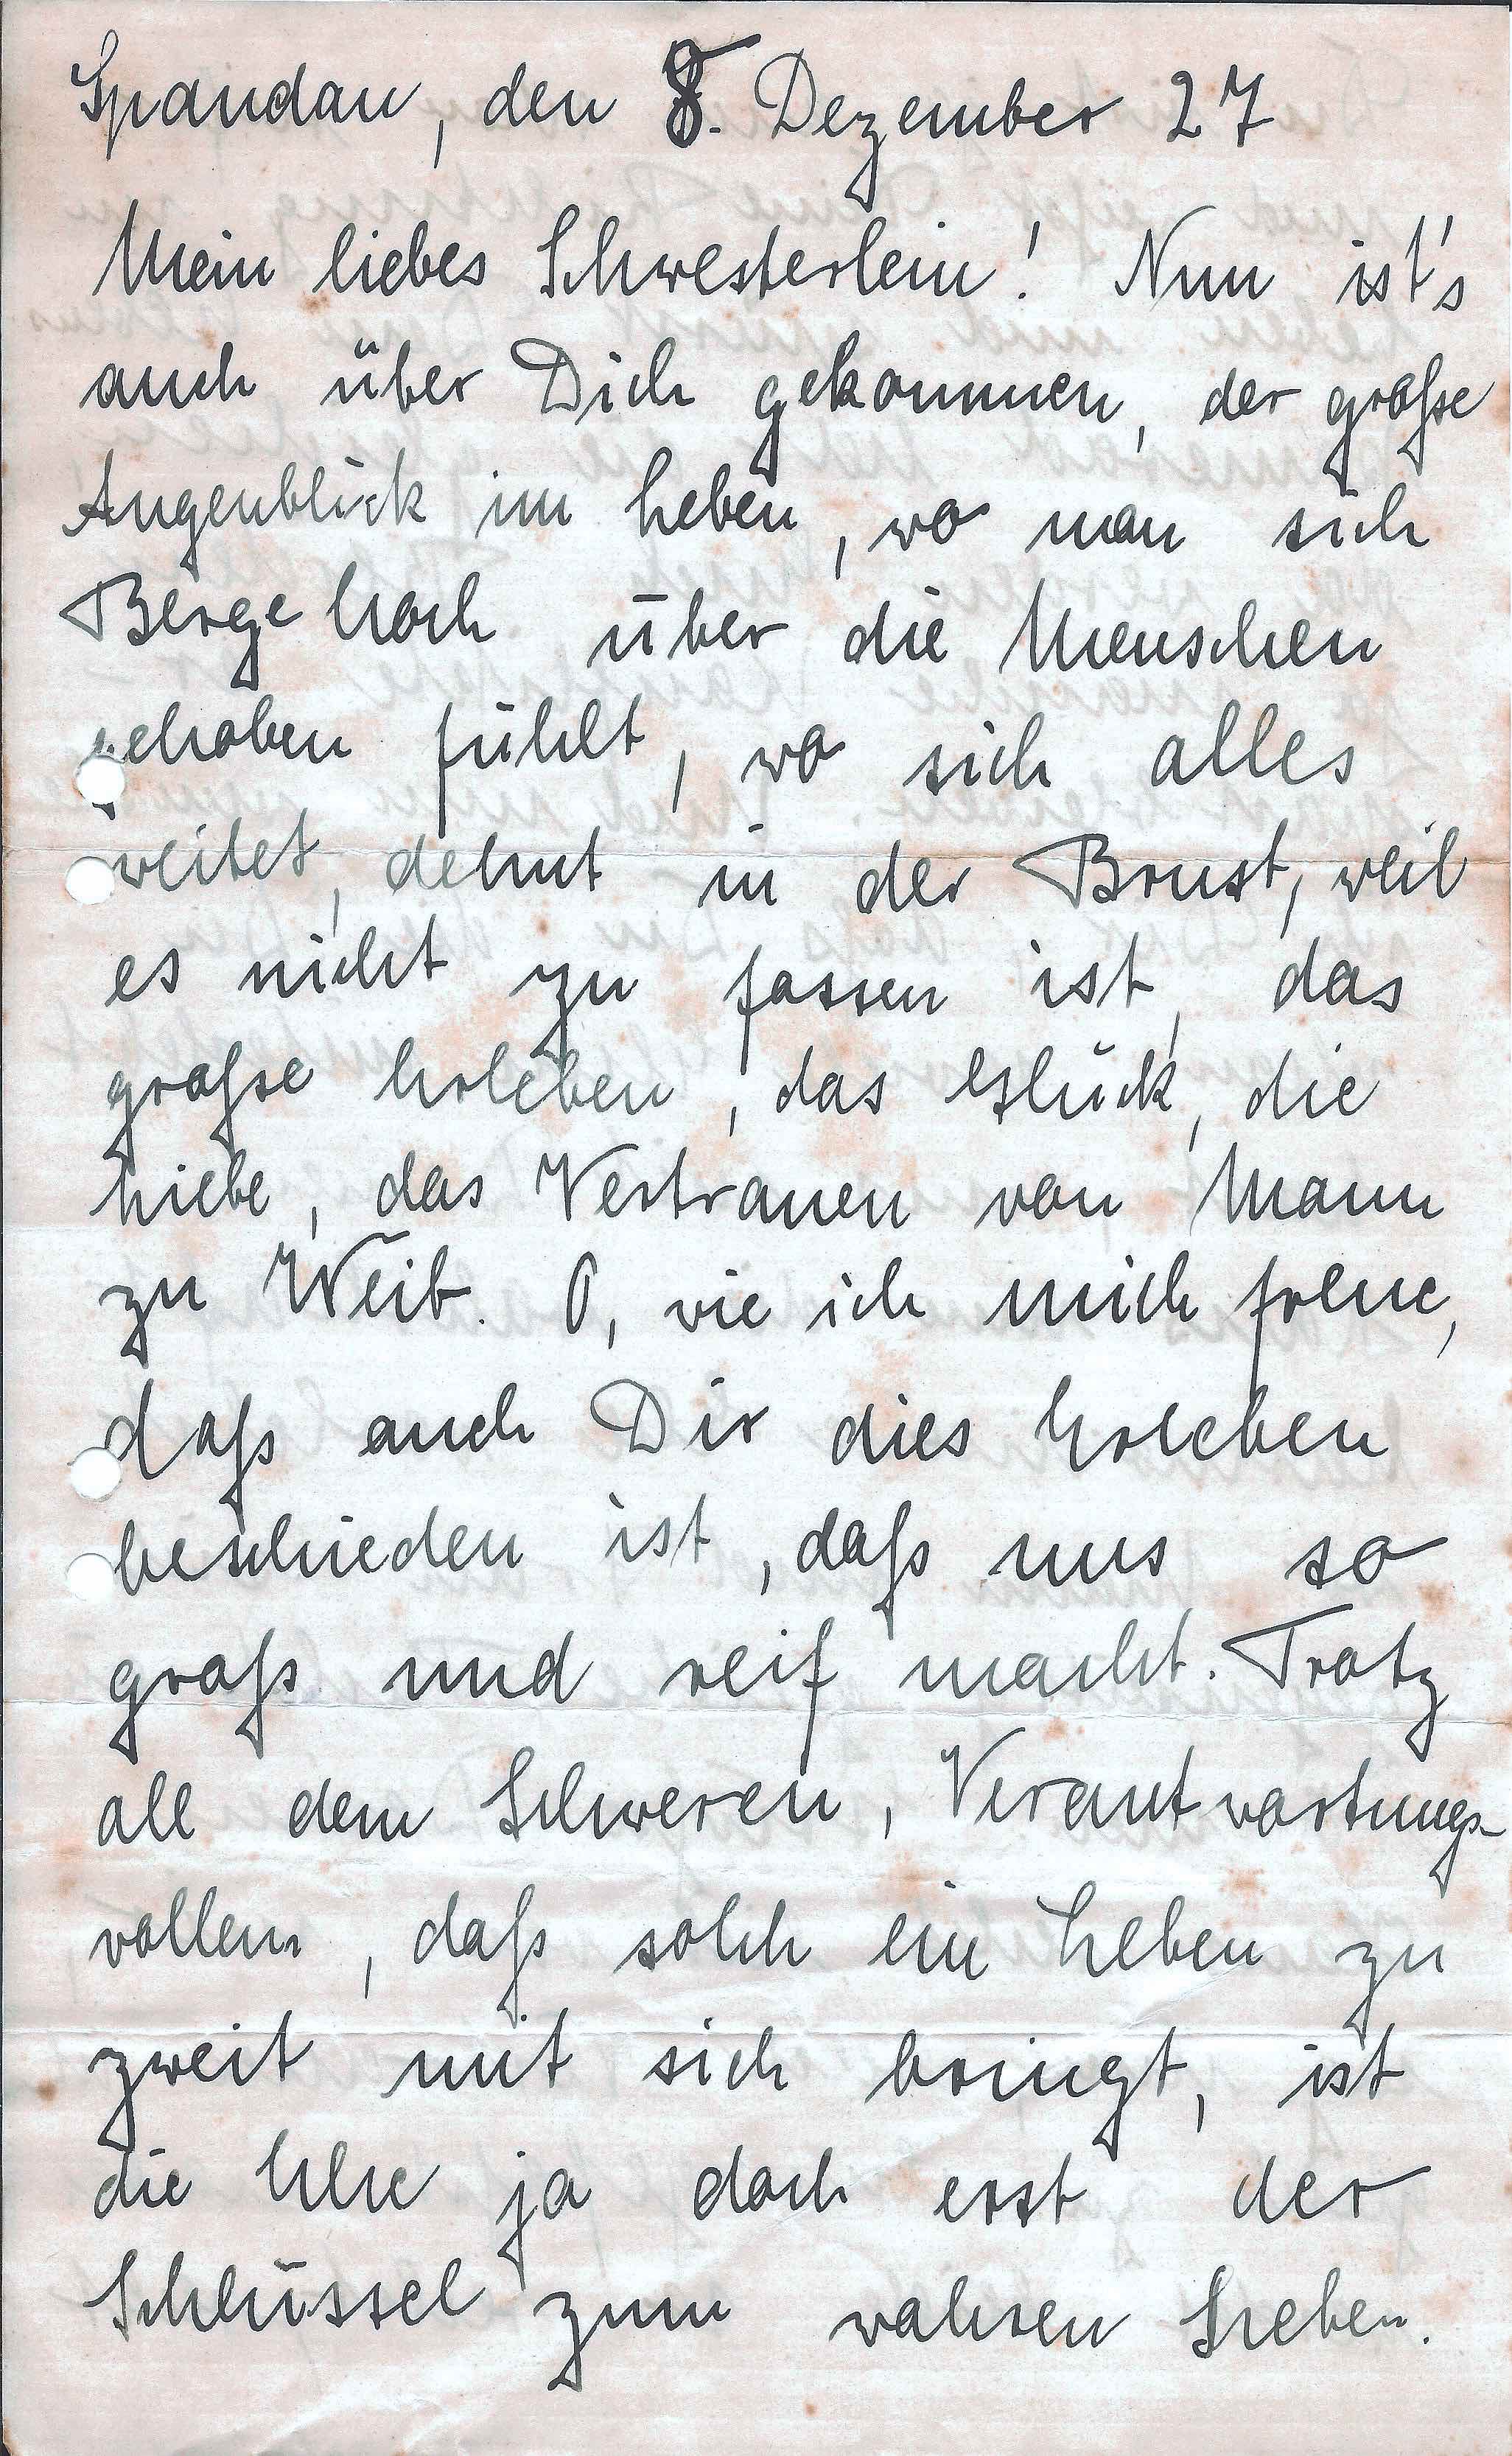 Spandau, den 8. Dezember 27
Mein liebes Schwesterlein! Nun ist's
auch über Dich gekommen, der große
Augenblick im Leben, wo man sich
Berge hoch über die Menschen
gehoben fühlt, wo sich alles
weitet, dehnt in der Brust, weil
es nicht zu fassen ist, das
große Erleben, das Glück, die
Liebe, das Vertrauen von Mann
zu Weib. O, wie ich mich freue,
daß auch Dir dies Erleben
beschieden ist, daß uns so
groß und reif macht. Trotz
all dem Schweren, Verantwortungs-
vollem, daß solch ein Leben zu
zweit mit sich bringt, ist
die Ehe ja doch erst der
Schlüssel zum wahren